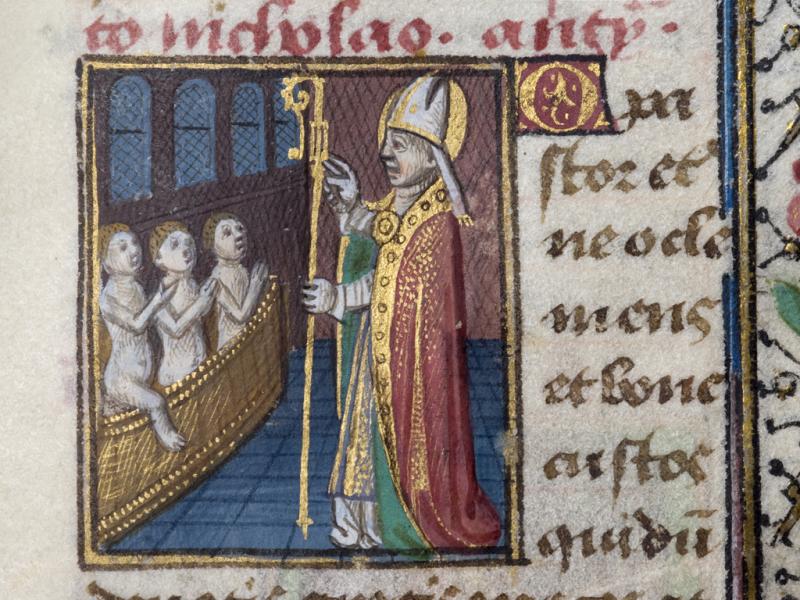 to nicholao. antȳ.
O pa
stor et
ne o cle
mens
et bone
custos
qui dū